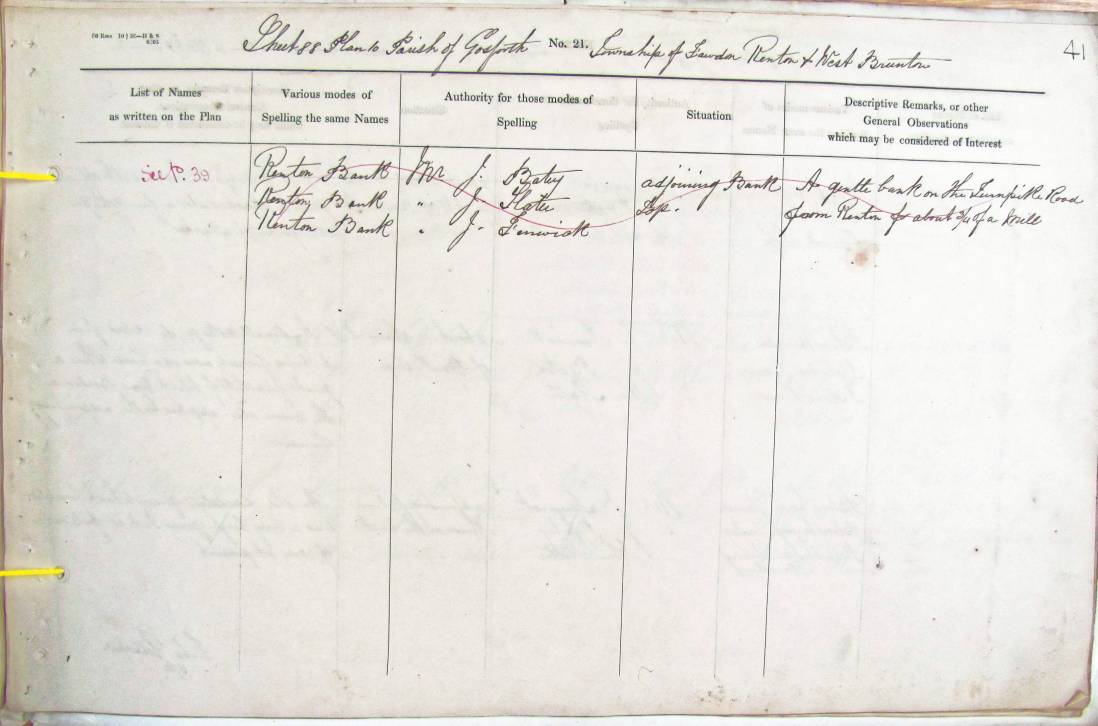 Sheet 88 Plan 6 Parish of Gosforth No. 21. Township of Fawdon Kenton & West Brunton
41
List of Names
as written on the Plan
Various modes of
Spelling the same Names
Authority for those modes of
Spelling
Situation
Descriptive Remarks, or other
General Observations
which may be considered of Interest
See p. 39
Kenton Bank Mr J. Batey adjoining Bank A gentle bank on the Turnpike Road
Kenton Bank " J. Slater Top. from Kenton for about 3/4 of a Mile
Kenton Bank " J. Fenwick